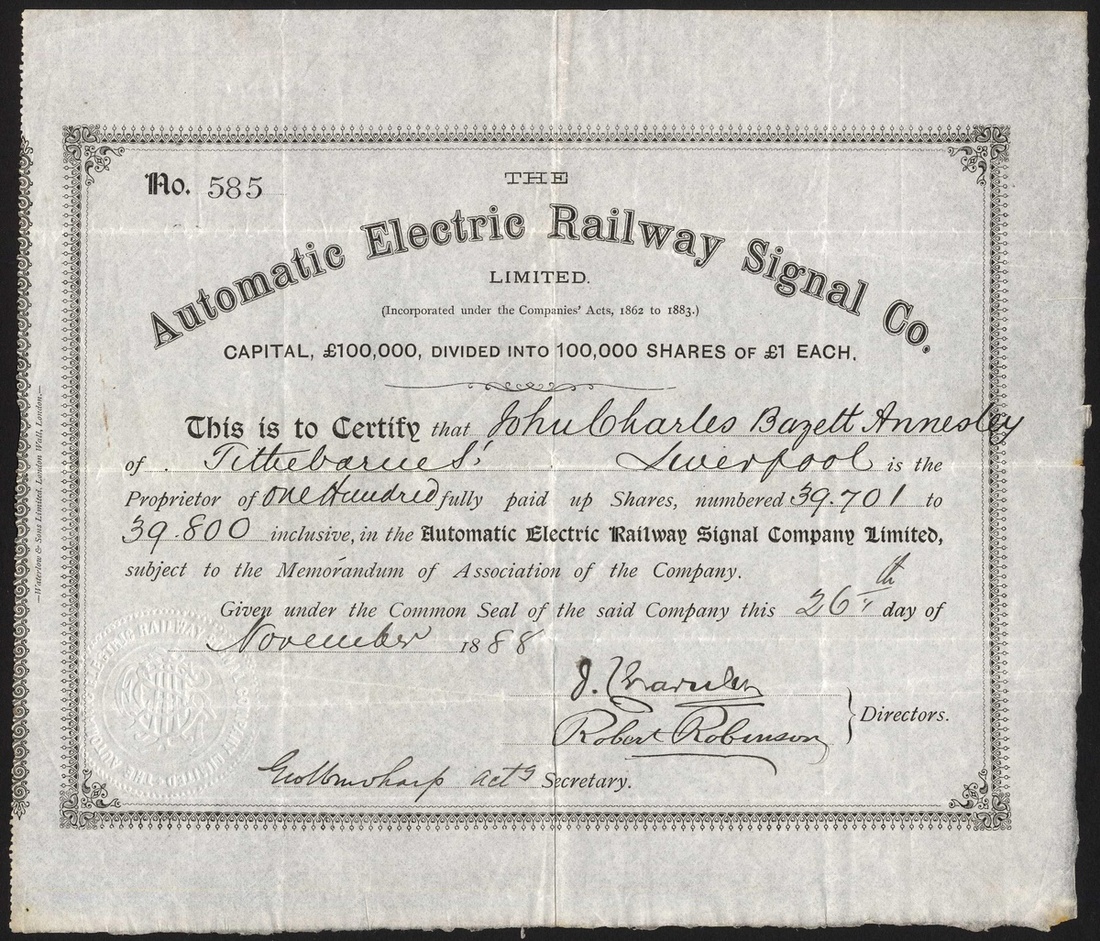 No. 585
THE
Automatic Electric Railway Signal Co.
LIMITED.
(Incorporated under the Companies' Acts, 1862 to 1883.)
CAPITAL, £100,000, DIVIDED INTO 100,000 SHARES OF £1 EACH.
This is to Certify that John Charles Bazett Annesley
of Tithebarne St Liverpool is the
Proprietor of One Hundred fully paid up Shares, numbered 39.701 to
39.800 inclusive, in the Automatic Electric Railway Signal Company Limited,
subject to the Memorandum of Association of the Company.
Given under the Common Seal of the said Company this 26th day of
November 1888
J.
Robert Robinson
Directors.
actg Secretary.
—Waterlow & Sons Limited, London Wall, London.—